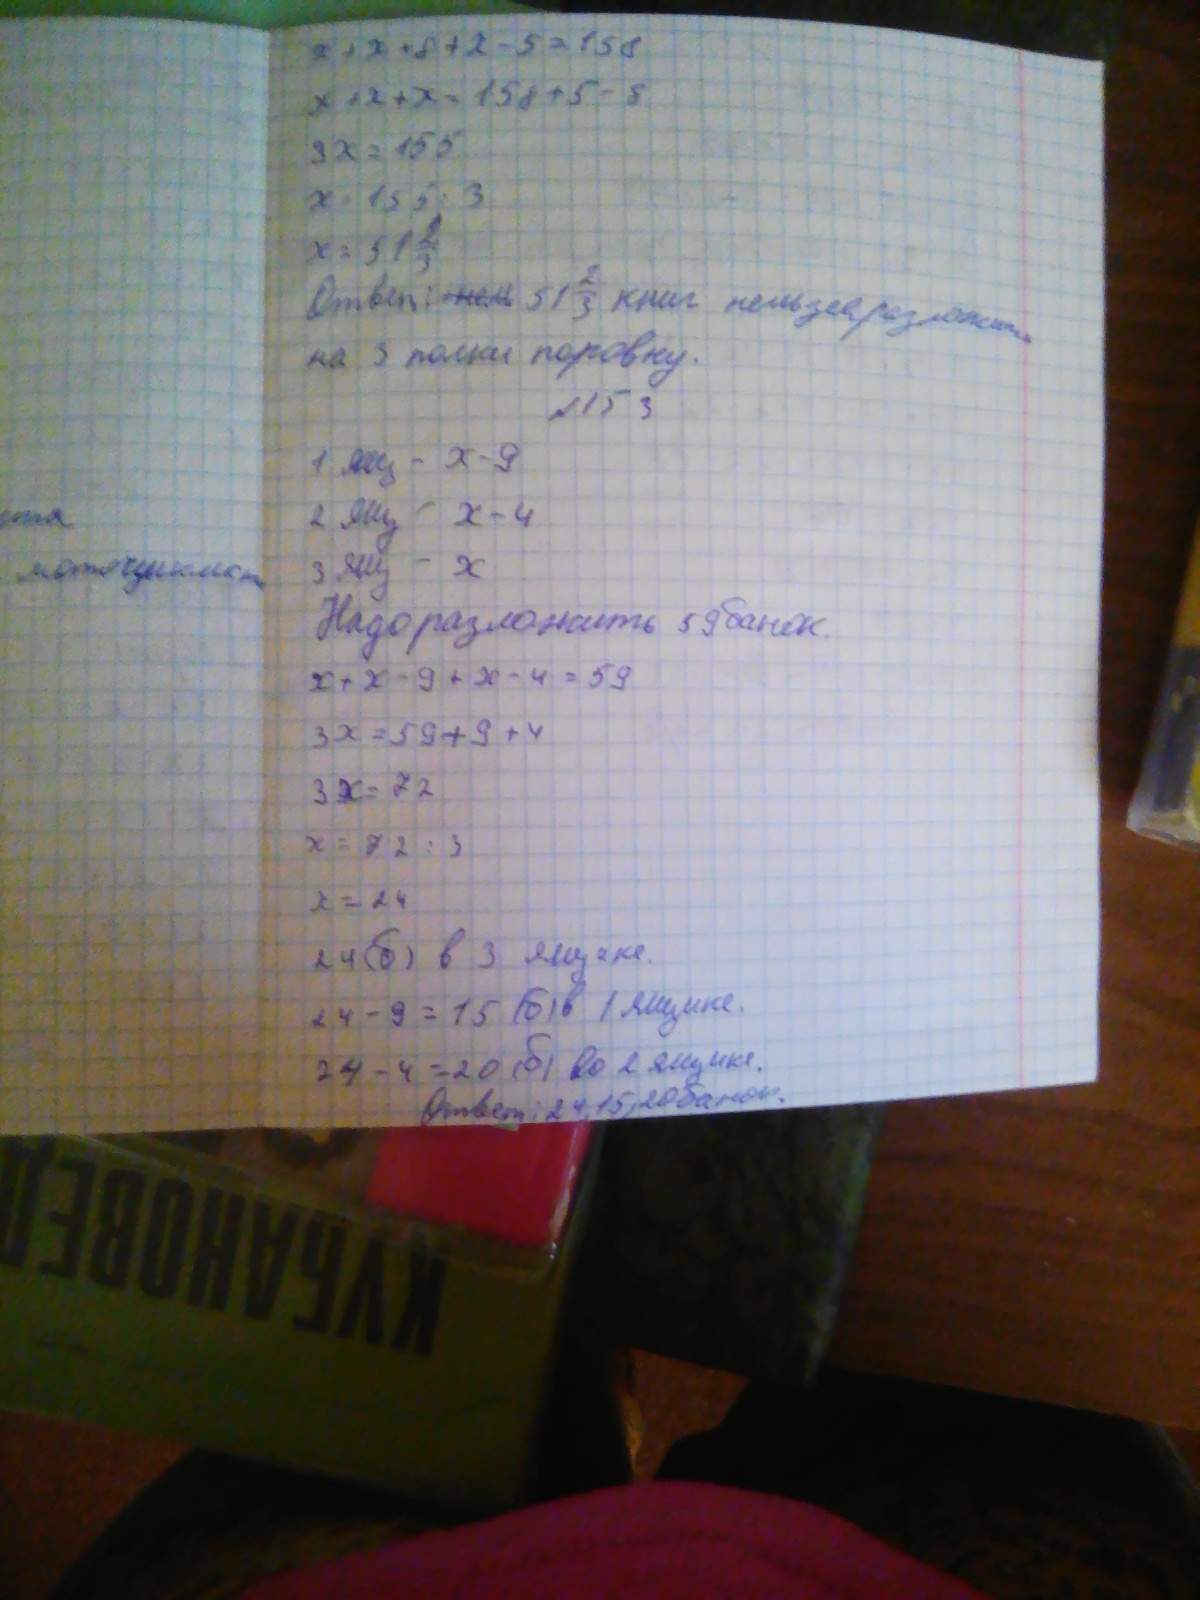 x + x + 8 + x - 5 = 158
x + x + x = 158 + 5 - 8
3x = 155
x = 155 : 3
x = 51 2/3
Ответ: 51 2/3 книг нельзя разложить
на 3 полки поровну.
№153
1 ящ - x - 9
2 ящ - x - 4
3 ящ - x
мотоцикл
Надо разложить 59 банок.
x + x - 9 + x - 4 = 59
3x = 59 + 9 + 4
3x = 72
x = 72 : 3
x = 24
24 (б) в 3 ящике.
24 - 9 = 15 (б) в 1 ящике.
24 - 4 = 20 (б) во 2 ящике.
Ответ: 24, 15, 20 банок.
КУБАНОВЕД